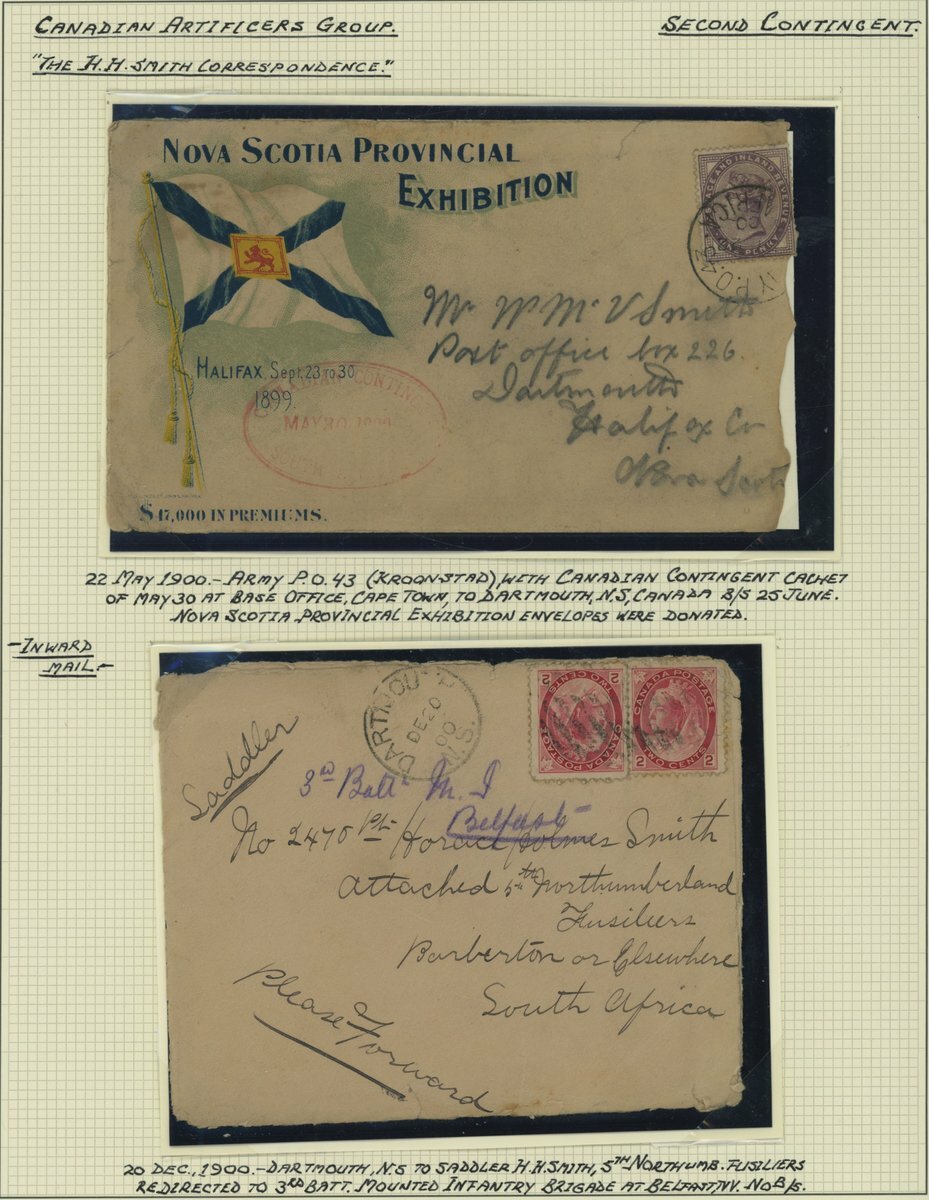 CANADIAN ARTIFICERS GROUP.
SECOND CONTINGENT.
"THE H.H. SMITH CORRESPONDENCE."
NOVA SCOTIA PROVINCIAL
EXHIBITION
HALIFAX, Sept. 23 TO 30
1899.
$17,000 IN PREMIUMS.
CANADIAN CONTING
MAY 30 1900
SOUTH
AND INLAND REVENUE
ONE PENNY
Mr Wm. V Smith
Post office box 226.
Dartmouth
Halifax Co
Nova Scoti
22 MAY 1900.- ARMY P.O. 43 (KROONSTAD), WITH CANADIAN CONTINGENT CACHET
OF MAY 30 AT BASE OFFICE, CAPE TOWN, TO DARTMOUTH, N.S, CANADA B/S 25 JUNE.
NOVA SCOTIA PROVINCIAL EXHIBITION ENVELOPES WERE DONATED.
-INWARD
MAIL.-
DARTMOUTH
DE 20
00
N.S.
CANADA POSTAGE
TWO CENTS
2 2
CANADA POSTAGE
TWO CENTS
2 2
Saddler
3rd Batt M. I
Belfast
No 2470 Pt Horace Holmes Smith
Attached 5th Northumberland
Fusiliers
Barberton or Elsewhere
South Africa
Please Forward
20 DEC., 1900.- DARTMOUTH, N.S TO SADDLER H.H. SMITH, 5TH NORTHUMB. FUSILIERS
REDIRECTED TO 3RD BATT. MOUNTED INFANTRY BRIGADE AT BELFAST, NV. NO B/S.